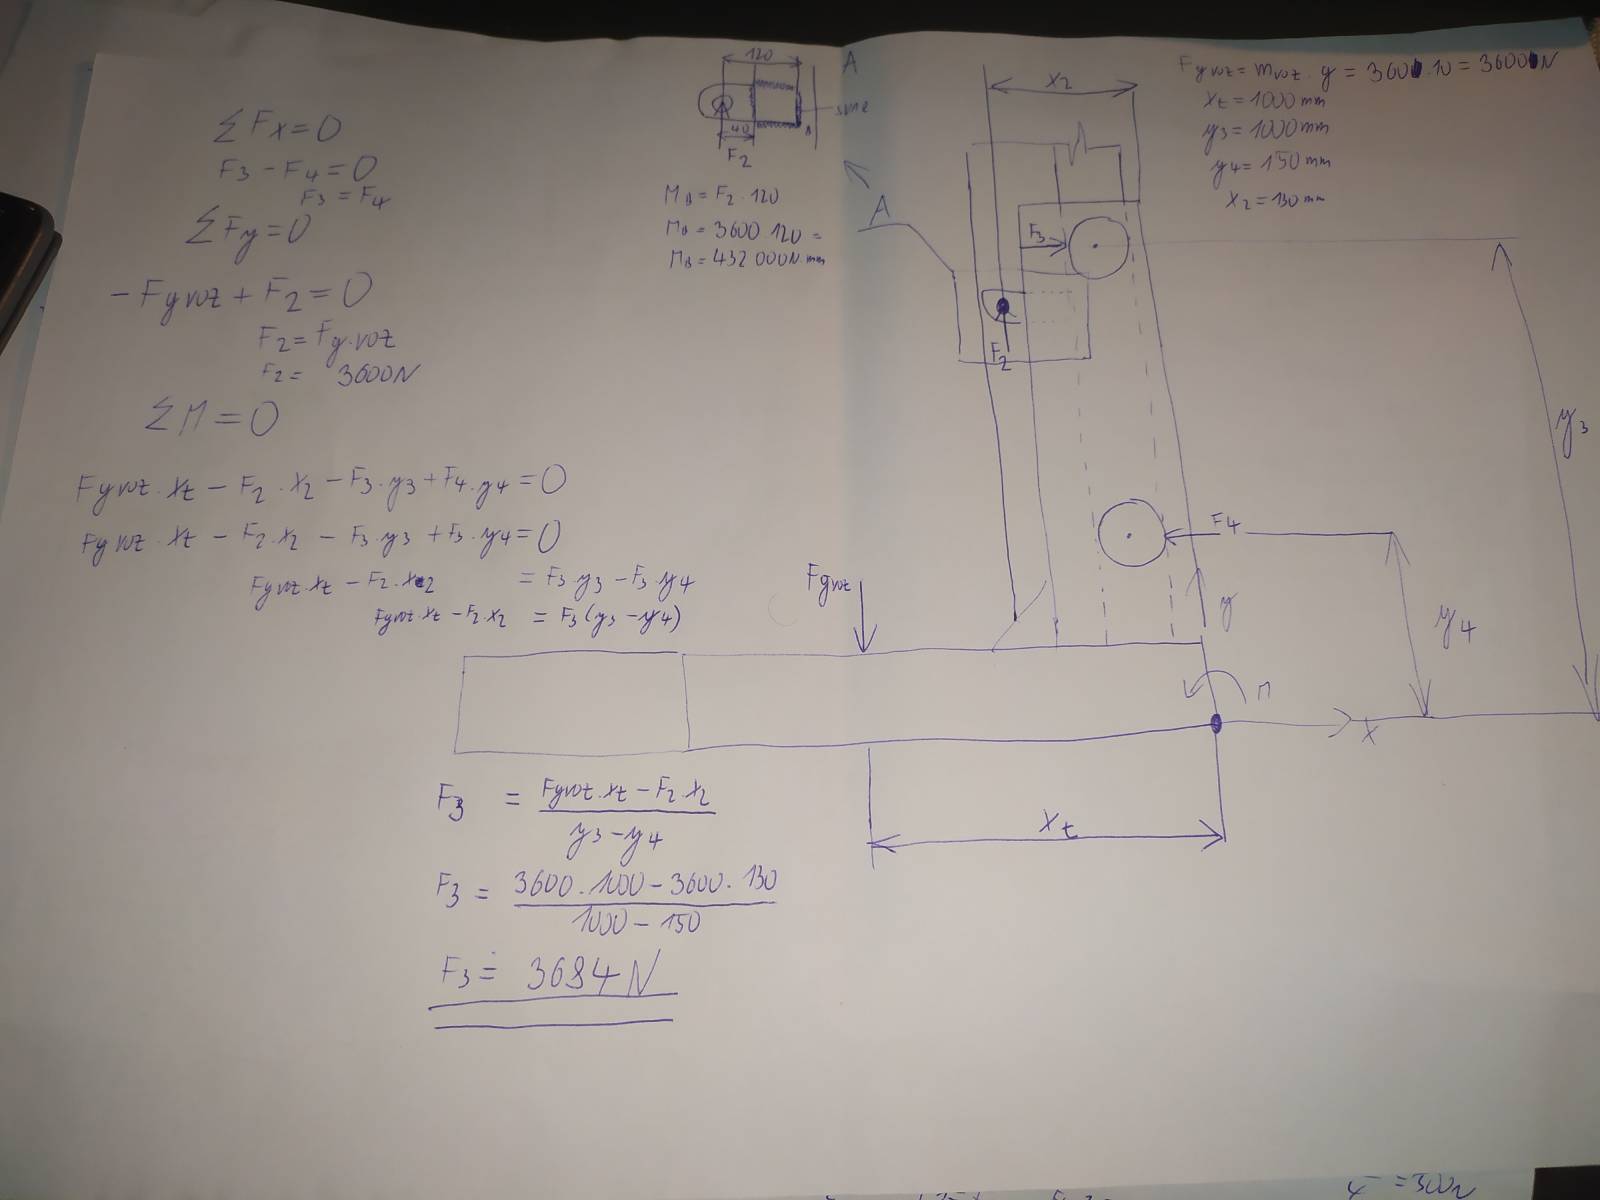 ΣFx=0
F3-F4=0
F3=F4
ΣFy=0
-Fgvoz+F2=0
F2=Fg.voz
F2= 3600N
ΣM=0
Fgvoz.xt-F2.x2-F3.y3+F4.y4=0
Fgvoz.xt-F2.x2-F3.y3+F3.y4=0
Fgvoz.xt-F2.x2 =F3.y3-F3.y4
Fgvoz.xt-F2.x2 =F3(y3-y4)
F3 = Fgvoz.xt-F2.x2
y3-y4
F3= 3600.1000-3600.130
1000-150
F3≐ 3684N
120
A
40
B
F2
MB=F2.120
MB=3600 120=
MB=432 000N.mm
A
x2
F3
F2
F4
Fgvoz
y
y4
y3
M
x
xt
Fgvoz=mvoz.g=360.10=3600N
xt=1000mm
y3=1000mm
y4=150mm
x2=130mm
=300N